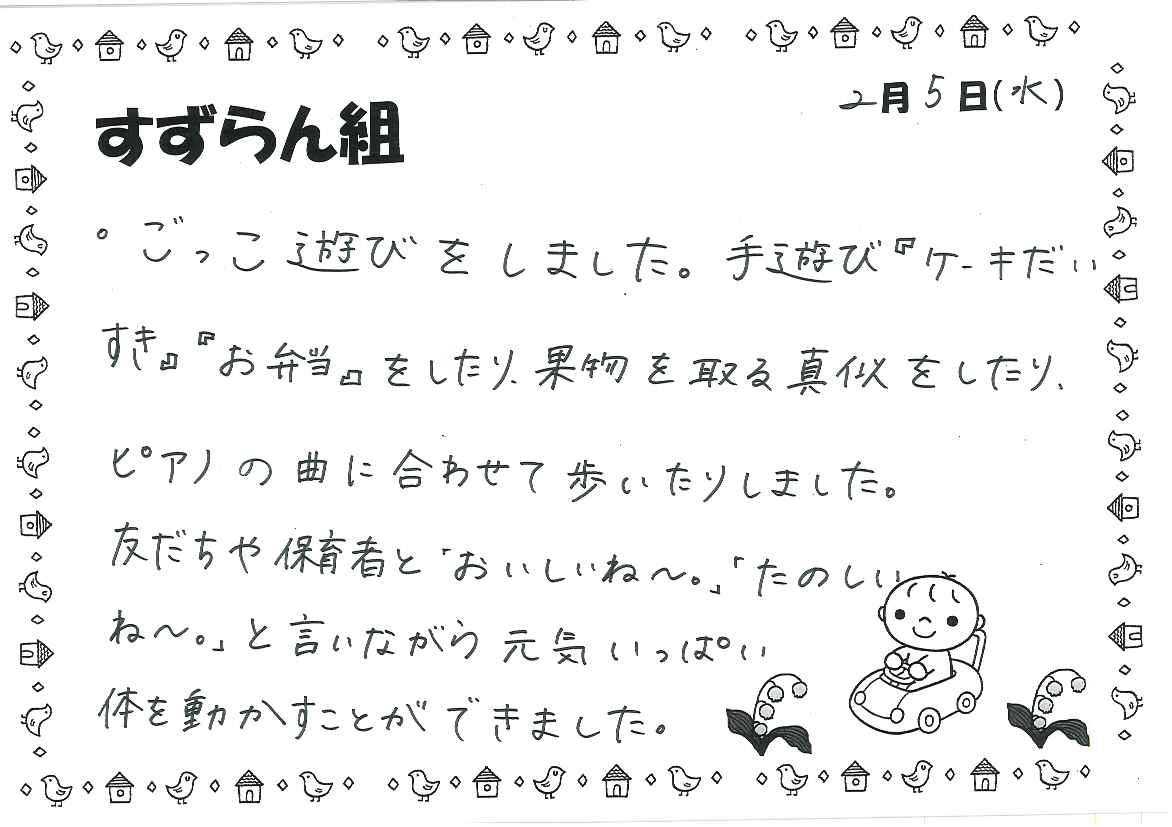 2月5日(水)
すずらん組
。ごっこ遊びをしました。手遊び『ケーキだい
すき』『お弁当』をしたり、果物を取る真似をしたり、
ピアノの曲に合わせて歩いたりしました。
友だちや保育者と「おいしいね〜。」「たのしい
ね〜。」と言いながら元気いっぱい
体を動かすことができました。